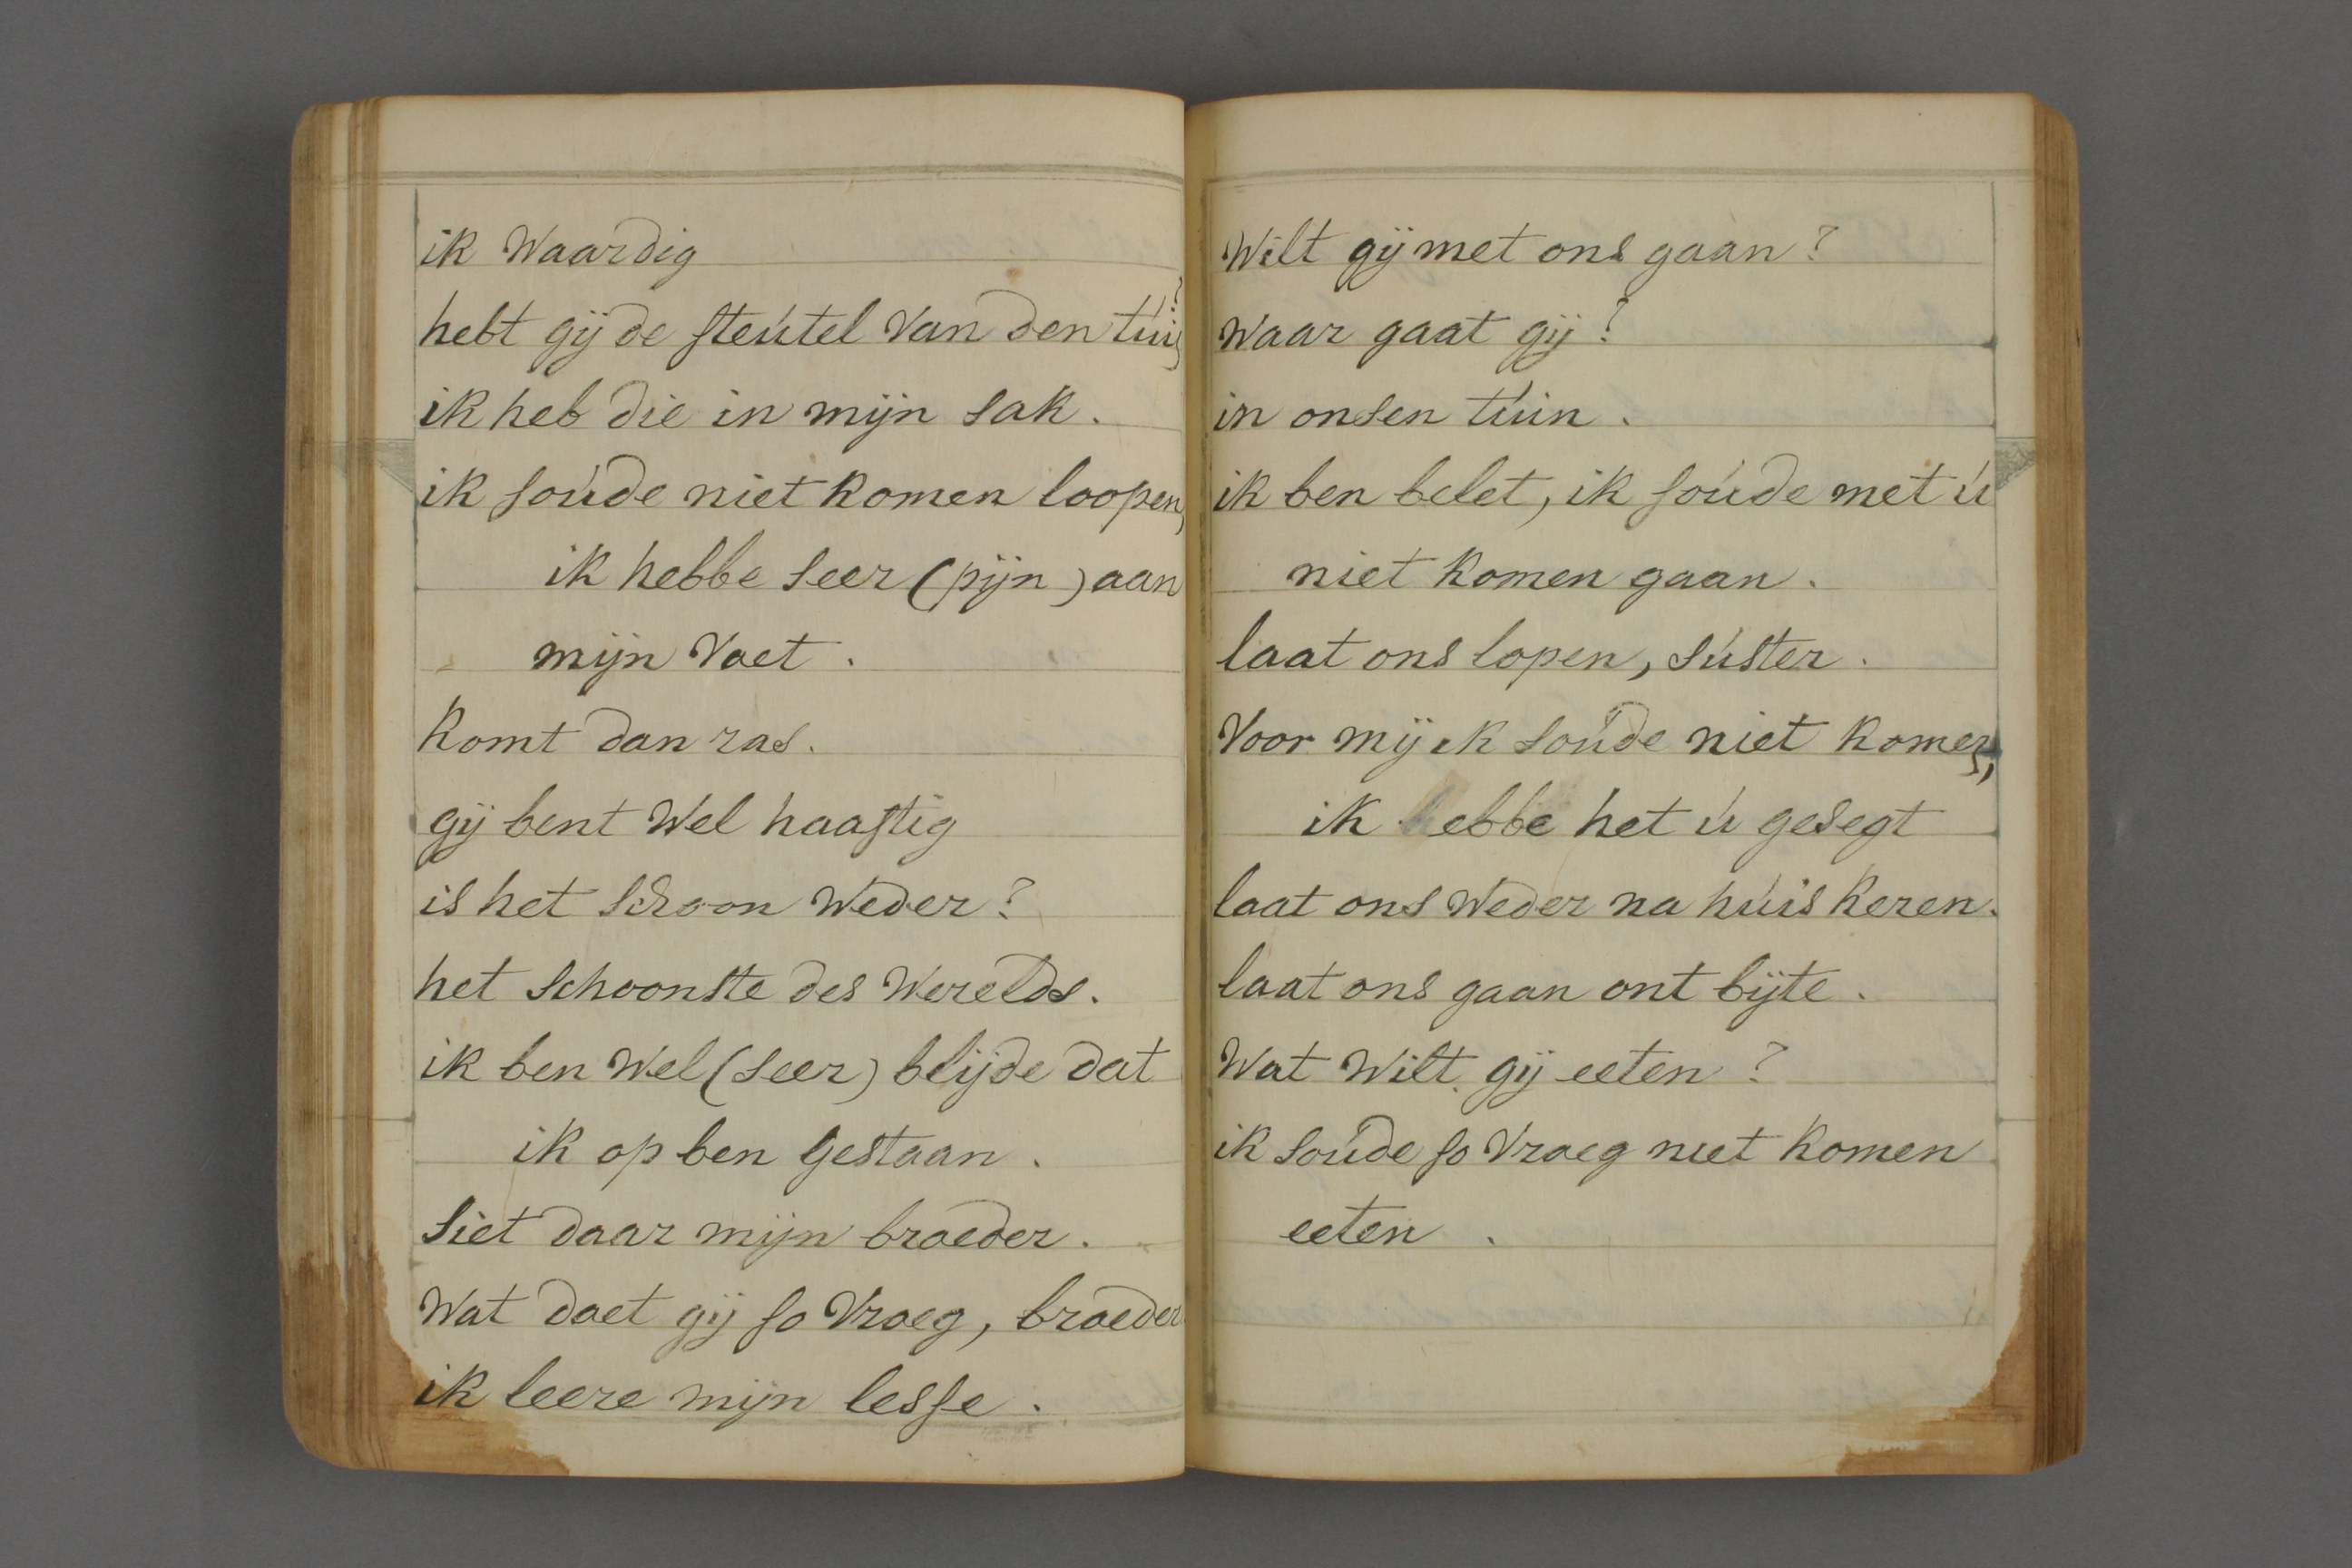 ik Waardig
hebt gij de steútel Van den túin?
ik heb die in mijn sak.
ik soúde niet komen loopen,
ik hebbe seer (pijn) aan
mijn Voet.
Komt dan ras.
gij bent Wel haastig
is het schoon Weder?
het schoonste des Werelds.
ik ben Wel (seer) blijde dat
ik op ben gestaan.
siet daar mijn broeder.
Wat doet gij so Vroeg, broeder
ik leere mijn lesse.
Wilt gij met ons gaan?
Waar gaat gij?
in onsen túin.
ik ben belet, ik soúde met ú
niet komen gaan.
laat ons lopen, súster.
Voor mij ik soúde niet komen,
ik hebbe het ú gesegt
laat ons Weder na húis keren.
laat ons gaan ont bijte.
Wat Wilt gij eeten?
ik soúde so Vroeg niet komen
eeten.